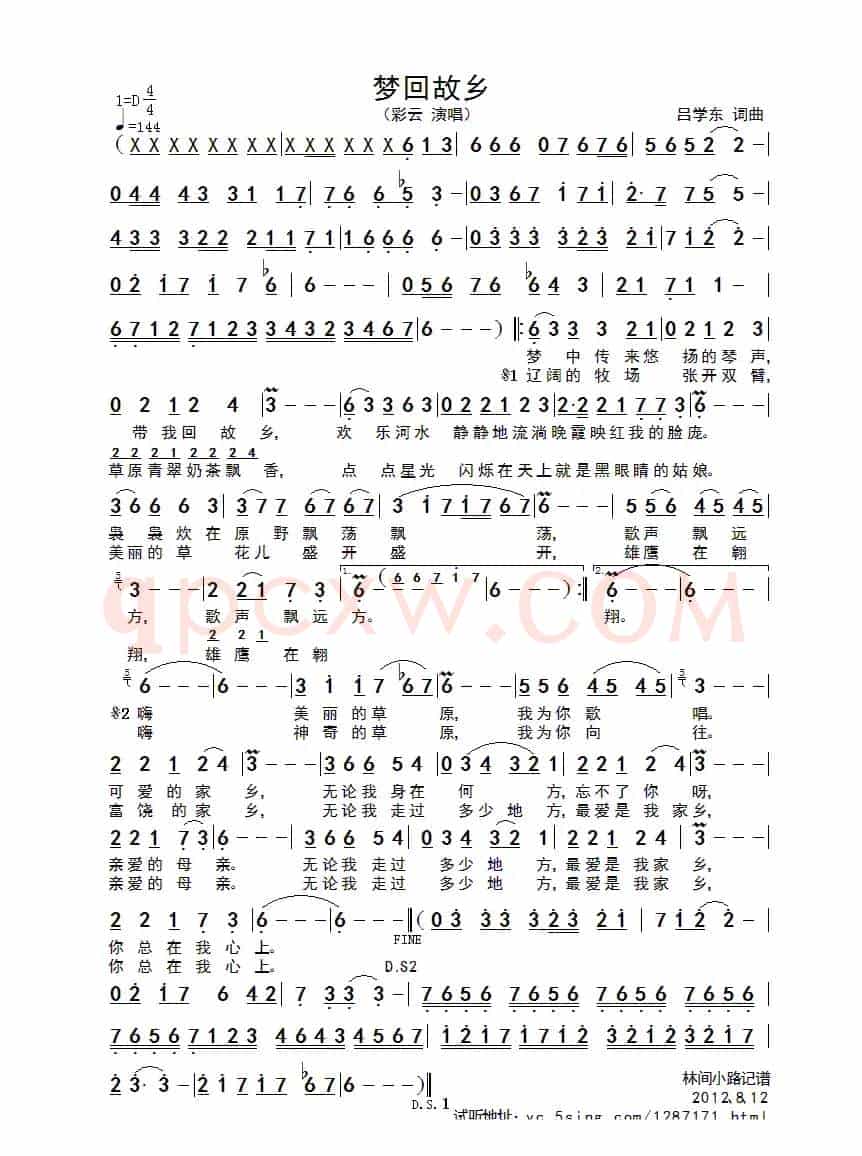 梦回故乡
1=D 4/4
（彩云 演唱）
吕学东 词曲
♩=144
（X X X X X X X X| X X X X X X X 6 1 3| 6 6 6 0 7 6 7 6| 5 6 5 2 2 -|
0 4 4 4 3 3 1 1 7| 7 6 6 ♭5 3 -| 0 3 6 7 1 7 1| 2· 7 7 5 5 -|
4 3 3 3 2 2 2 1 1 7 1| 1 6 6 6 6 -| 0 3 3 3 3 2 3 2 1| 7 1 2 2 -|
0 2 1 7 1 7 ♭6| 6 - - -| 0 5 6 7 6 ♭6 4 3| 2 1 7 1 1 -|
6 7 1 2 7 1 2 3 3 4 3 2 3 4 6 7| 6 - - -）‖: 6 3 3 3 2 1| 0 2 1 2 3|
梦 中 传 来 悠 扬 的 琴 声,
𝄋1 辽 阔 的 牧 场 张 开 双 臂,
0 2 1 2 4| 3 - - -| 6 3 3 6 3| 0 2 2 1 2 3| 2·2 2 1 7 7 3| 6 - - -|
带 我 回 故 乡, 欢 乐 河 水 静 静 地 流 淌 晚 霞 映 红 我 的 脸 庞。
2 2 1 2 2 4
草 原 青 翠 奶 茶 飘 香, 点 点 星 光 闪 烁 在 天 上 就 是 黑 眼 睛 的 姑 娘。
3 6 6 6 3| 3 7 7 6 7 6 7| 3 1 7 1 7 6 7| 6 - - -| 5 5 6 4 5 4 5|
袅 袅 炊 在 原 野 飘 荡 飘 荡, 歌 声 飘 远
美 丽 的 草 花 儿 盛 开 盛 开, 雄 鹰 在 翱
3 - - -| 2 2 1 7 3| 1. 6（6 6 7 1 7| 6 - - -）:‖ 2. 6 - - -| 6 - - -|
方, 歌 声 飘 远 方。 翔。
2 2 1
翔, 雄 鹰 在 翱
6 - - -| 6 - - -| 3 1 1 7 ♭6 7| 6 - - -| 5 5 6 4 5 4 5| 3 - - -|
𝄋2 嗨 美 丽 的 草 原, 我 为 你 歌 唱。
嗨 神 奇 的 草 原, 我 为 你 向 往。
2 2 1 2 4| 3 - - -| 3 6 6 5 4| 0 3 4 3 2 1| 2 2 1 2 4| 3 - - -|
可 爱 的 家 乡, 无 论 我 身 在 何 方, 忘 不 了 你 呀,
富 饶 的 家 乡, 无 论 我 走 过 多 少 地 方, 最 爱 是 我 家 乡,
2 2 1 7 3| 6 - - -| 3 6 6 5 4| 0 3 4 3 2 1| 2 2 1 2 4| 3 - - -|
亲 爱 的 母 亲。 无 论 我 走 过 多 少 地 方, 最 爱 是 我 家 乡,
亲 爱 的 母 亲。 无 论 我 走 过 多 少 地 方, 最 爱 是 我 家 乡,
2 2 1 7 3| 6 - - -| 6 - - -‖（0 3 3 3 3 2 3 2 1| 7 1 2 2 -|
FINE
你 总 在 我 心 上。
你 总 在 我 心 上。 D.S2
0 2 1 7 6 4 2| 7 3 3 -| 7 6 5 6 7 6 5 6 7 6 5 6 7 6 5 6|
7 6 5 6 7 1 2 3 4 6 4 3 4 5 6 7| 1 2 1 7 1 2 1 7 3 2 1 2 3 2 1 7|
2 3· 3 -| 2 1 7 1 7 ♭6 7| 6 - - -）‖
D.S.1
林间小路记谱
2012.8.12
试听地址: yc.5sing.com/1287171.html
qpcxw.COM